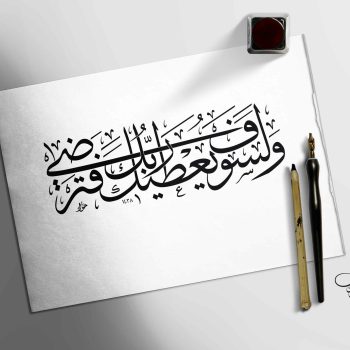 ولسوف يعطيك ربك فترضى
١٤٣٨